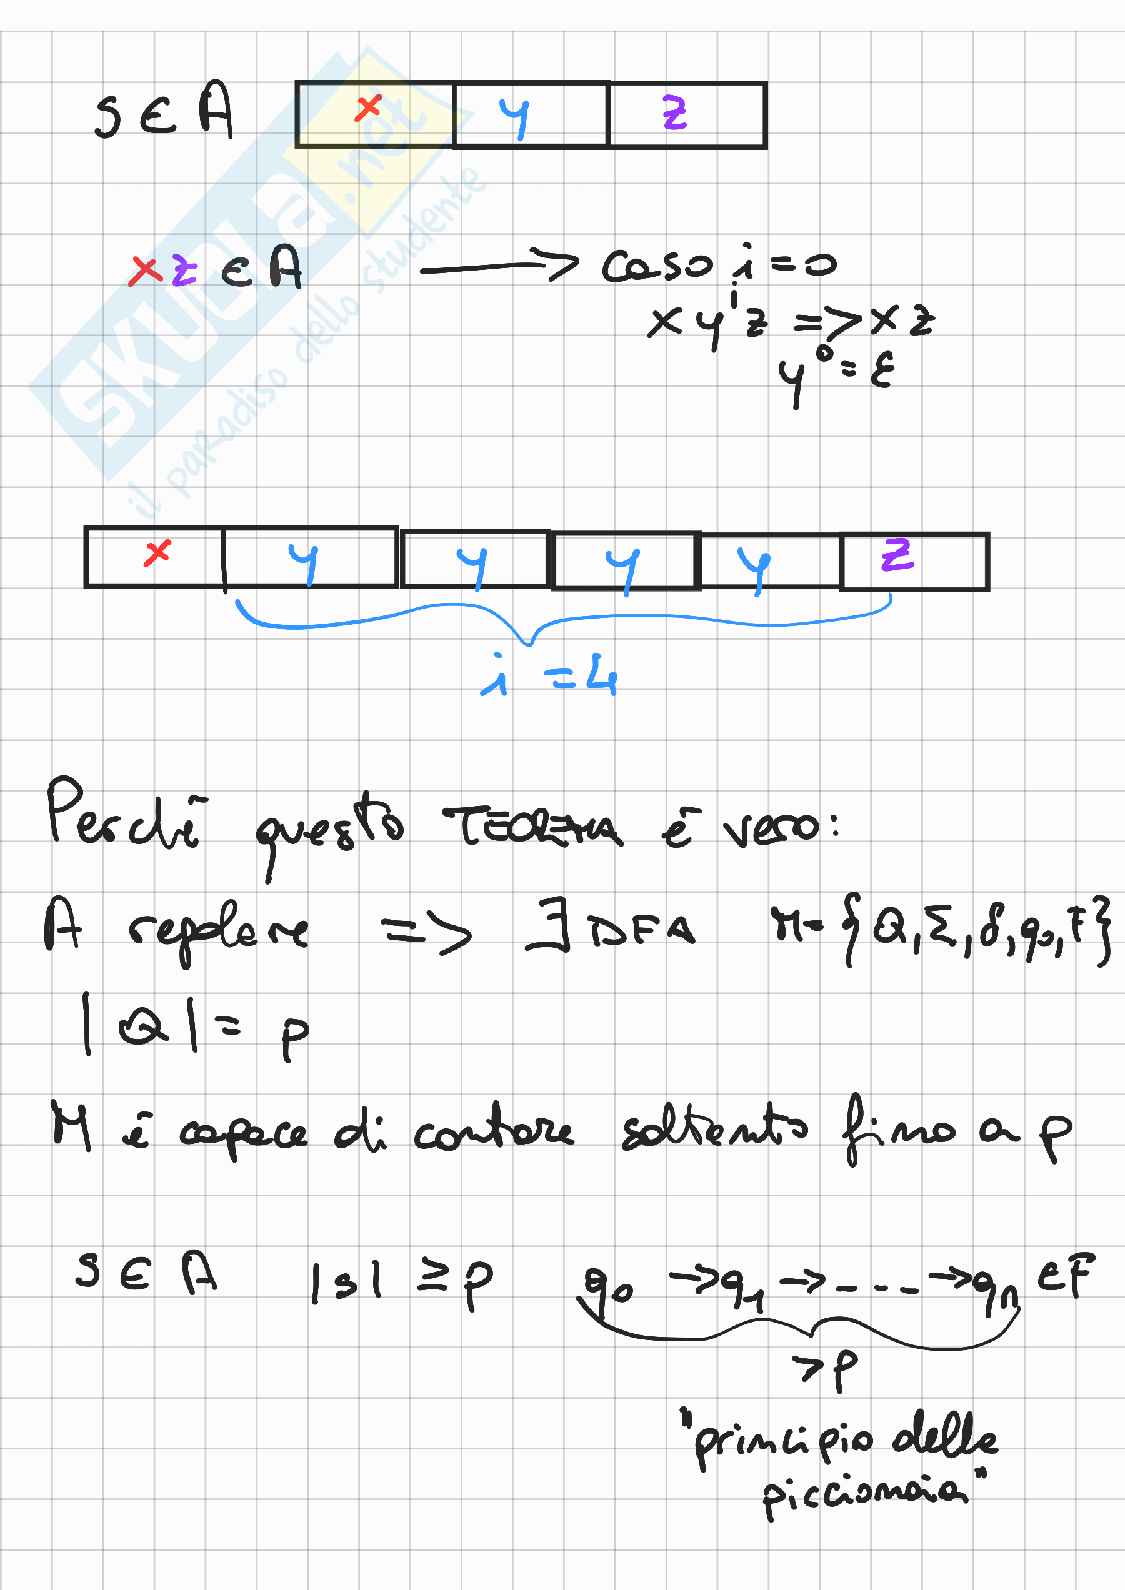 S ∈ A x y z
xz ∈ A → caso i = 0
x yⁱ z => x z
y⁰ = ε
x y y y y z
i = 4
Perchē questo TEOREMA ē vero:
A regolare => ∃ DFA M = {Q, Σ, δ, q₀, F}
|Q| = p
M ē capace di contare soltanto fino a p
S ∈ A |s| ≥ p q₀ → q₁ → - - - → qₙ ∈ F
> p
"principio della
piccionaia"
SKUOLA.net
il paradiso dello studente